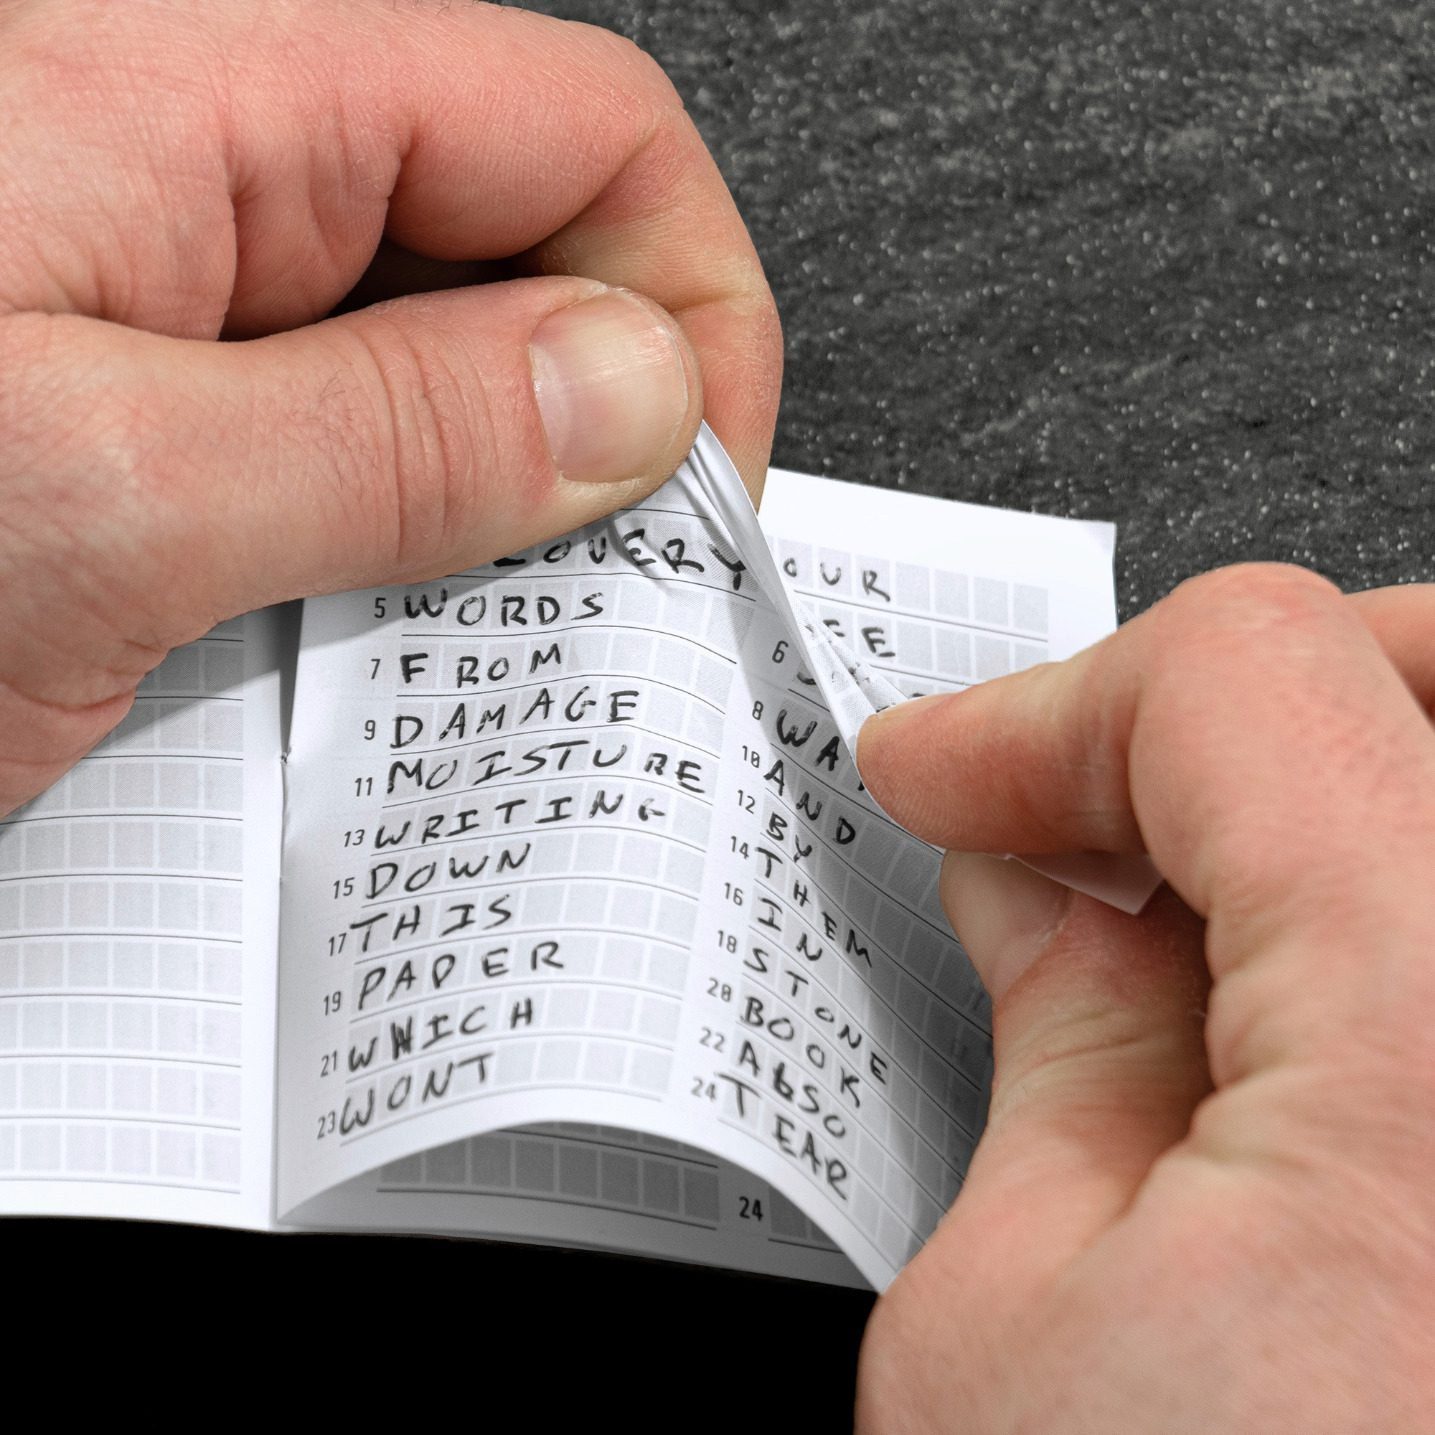 COVERY OUR
5 WORDS 6
7 FROM 8 WA
9 DAMAGE 10 AND
11 MOISTURE 12 BY
13 WRITING 14 THEM
15 DOWN 16 IN
17 THIS 18 STONE
19 PAPER 20 BOOK
21 WHICH 22 ALSO
23 WONT 24 TEAR
24